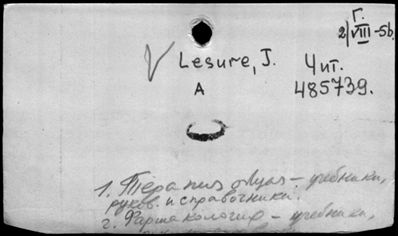 Г.
2/VIII-5b.
V Lesure, J. Чит.
A 485739.
1. Терапия общая - учебники,
руков. и справочники.
2. Фармакология - учебники,